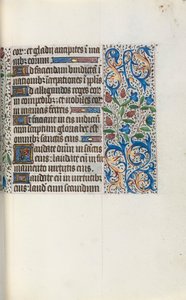 eor: et gladii ancipites in ma
nibus eorum
Ad faciendam vindictam in
nationibus increpationes in populis
Ad alligandos reges eor
in compedibus: et nobiles eor
in manicis ferreis
Ut faciant in eis iudicium
conscriptum gloria hec est
omnibus sanctis eius
Laudate dnm in sanctis
eius: laudate eum in fir
mamento virtutis eius
Laudate eum in virtutibus
eius laud eum secundum